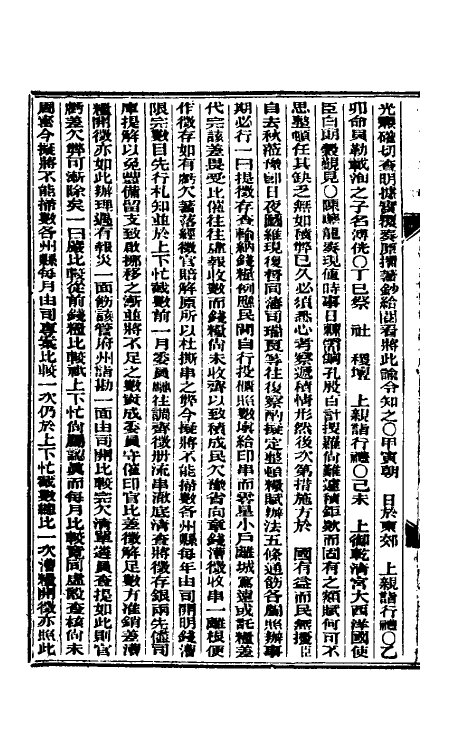 光緒確切查明據實覆奏原摺著鈔給閱看將此諭令知之○甲寅朝　日於東郊　上親詣行禮○乙
卯命貝勒載洵之子名溥侊○丁巳祭　社　稷壇　上親詣行禮○己未　上御乾清宮大西洋國使
臣白朗穀覲見○陳夔龍奏現值時事日棘需餉孔殷百計搜羅尚難遽積鉅款而固有之額賦何可不
思整頓任其缺乏無如積弊已久必須悉心考察遞積情形然後次第措施方於　國有益而民無擾臣
自去秋蒞豫即日夜圖維現復督同藩司瑞良等往復察酌擬定整頓糧賦辦法五條通飭各屬照辦事
期必行一曰提徵存查輸納錢糧例應民間自行投櫃照數填給印串而零星小戶離城窵遠或託糧差
代完該差畏受比催往往虛報收數而錢糧尚未收齊以致積成民欠豫省向章錢漕徵收串一離根便
作徵存如有虧欠著落經徵官賠解原所以杜撕串之弊今擬將不能掃數各州縣每年由司開明錢漕
限完數目先行札知並於上下忙截數前一月委員馳往調齊徵册流串澈底清查將徵存銀兩先儘司
庫提解以免豐備留支致啟挪移之漸並將不足之數責成委員守催印官比差徵解足數方准銷差漕
糧開徵亦如此辦理遇有報災一面飭該管府州詣勘一面由司開比較完欠清單遴員查提如此則官
虧差欠弊可漸除矣一曰嚴比較從前錢糧比較祇上下忙尚屬認眞而每月比較竟同虛設查核尚未
周密今擬將不能掃數各州縣每月由司專案比較一次仍於上下忙截數總比一次漕糧開徵亦照此